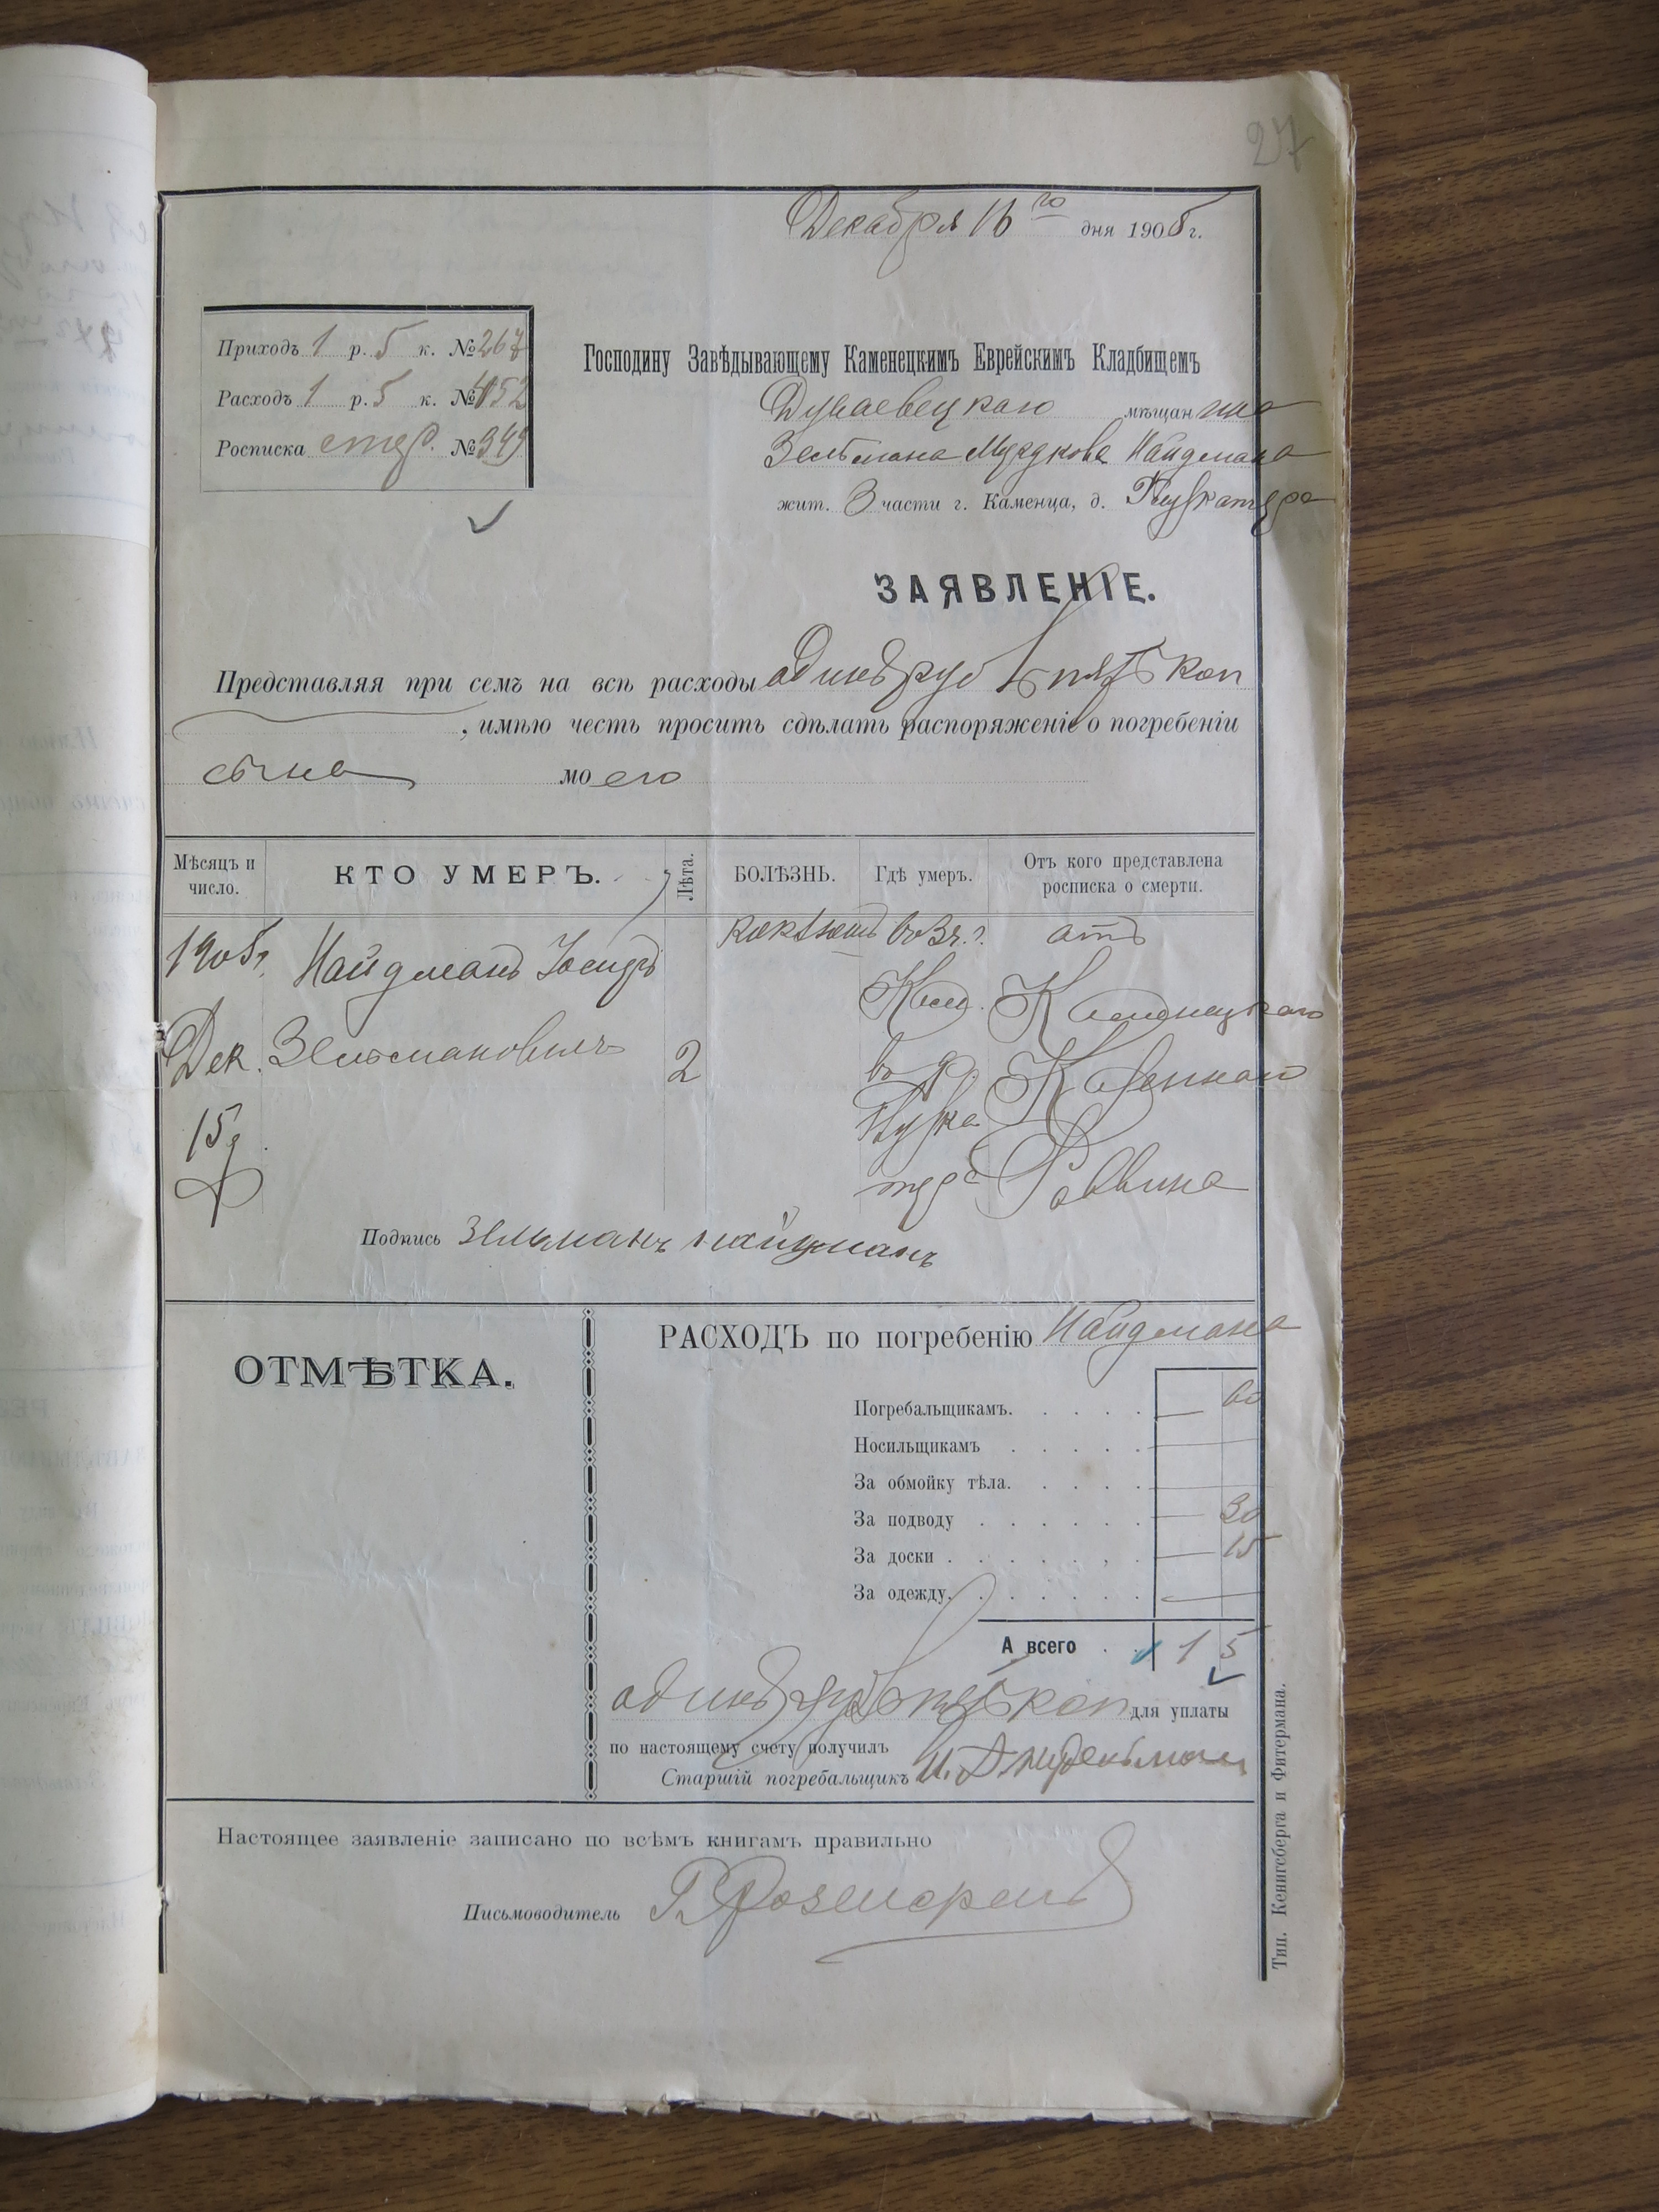 27
Декабря 16го дня 1905 г.
Приходъ 1 р. 5 к. № 267
Расходъ 1 р. 5 к. № 1152
Росписка № 349
Господину Завѣдывающему Каменецкимъ Еврейскимъ Кладбищемъ
Дунаевецкаго мѣщанина
Зельмана Мордкова Найдмана
жит. 3 части г. Каменца, д.
ЗАЯВЛЕНІЕ.
Представляя при семъ на всѣ расходы одинъ руб пять коп
, имѣю честь просить сдѣлать распоряженіе о погребеніи
сына моего
Мѣсяцъ и число. КТО УМЕРЪ. Лѣта. БОЛѢЗНЬ. Гдѣ умеръ. Отъ кого представлена росписка о смерти.
1905 г. Найдманъ коклюшъ во 3 ч. г. отъ
Кам. Каменецкаго
Дек. Зельмановичъ 2 в д. Казеннаго
15 д. Раввина
Подпись Зельманъ Найдманъ
ОТМѢТКА.
РАСХОДЪ по погребенію Найдмана
Погребальщикамъ. — 60
Носильщикамъ
За обмойку тѣла.
За подводу — 30
За доски — 15
За одежду. —
А всего 1 5
одинъ руб пять коп для уплаты
по настоящему счету получилъ
Старшій погребальщикъ
Настоящее заявленіе записано по всѣмъ книгамъ правильно
Письмоводитель
Тип. Кенигсберга и Фитермана.